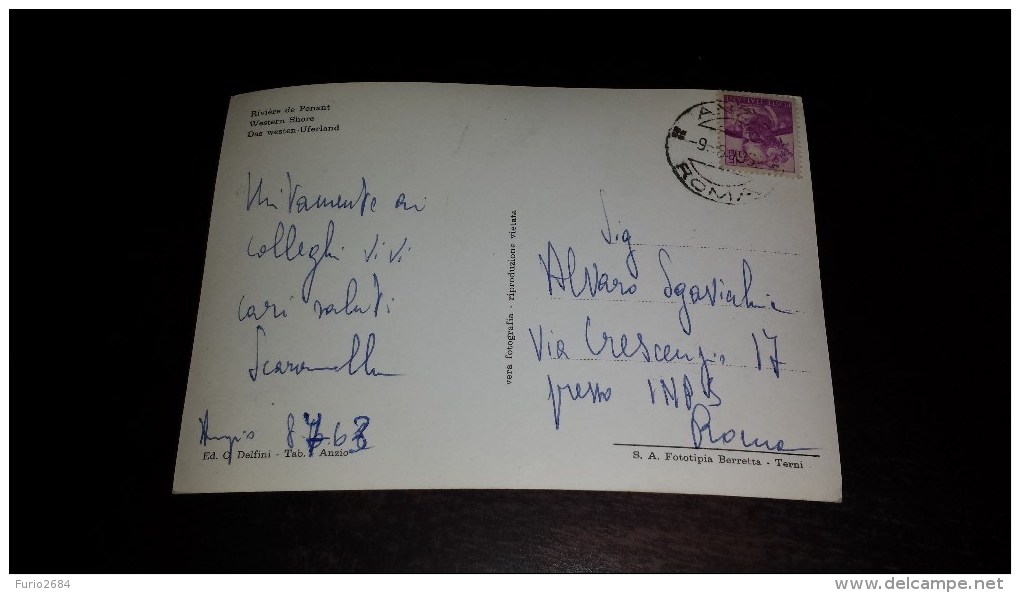 Rivière de Ponant
Western Shore
Das westen-Uferland
Unitamente ai
colleghi vivi
cari saluti
Anzio 8 63
Ed. C. Delfini - Tab. Anzio
vera fotografia - riproduzione vietata
ROMA
Sig
Alvaro
Via Crescenzio 17
presso INPS
Roma
S. A. Fototipia Berretta - Terni
Furio2684
www.delcampe.net